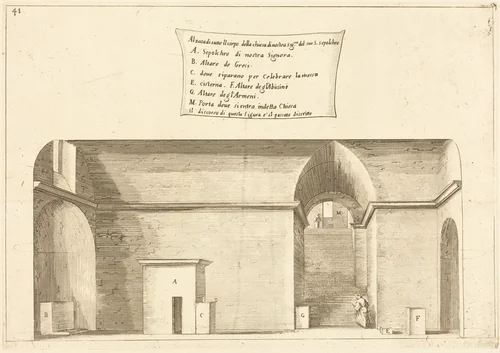 41
Alzato di tutto Il corpo della chiesa di nostra Sig.ra del suo S. sepolchro
A. Sepolchro di nostra Signora.
B. Altare de Greci.
C. doue si parano per Celebrare la messa
E. cisterna. F. Altare degl'Abissini
G. Altare degl'Armeni.
M. Porta doue si entra in detta Chiesa
il discorso di questa figura è il passato discritto
M
A
B
C
G
E
F